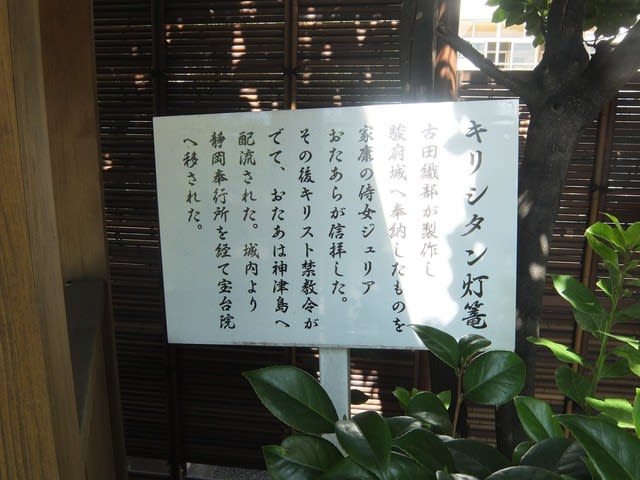 キリシタン灯篭
古田織部が製作し
駿府城へ奉納したものを
家康の侍女ジュリア
おたあらが信拝した。
その後キリスト禁教令が
でて、おたあは神津島へ
配流された。城内より
静岡奉行所を経て宝台院
へ移された。